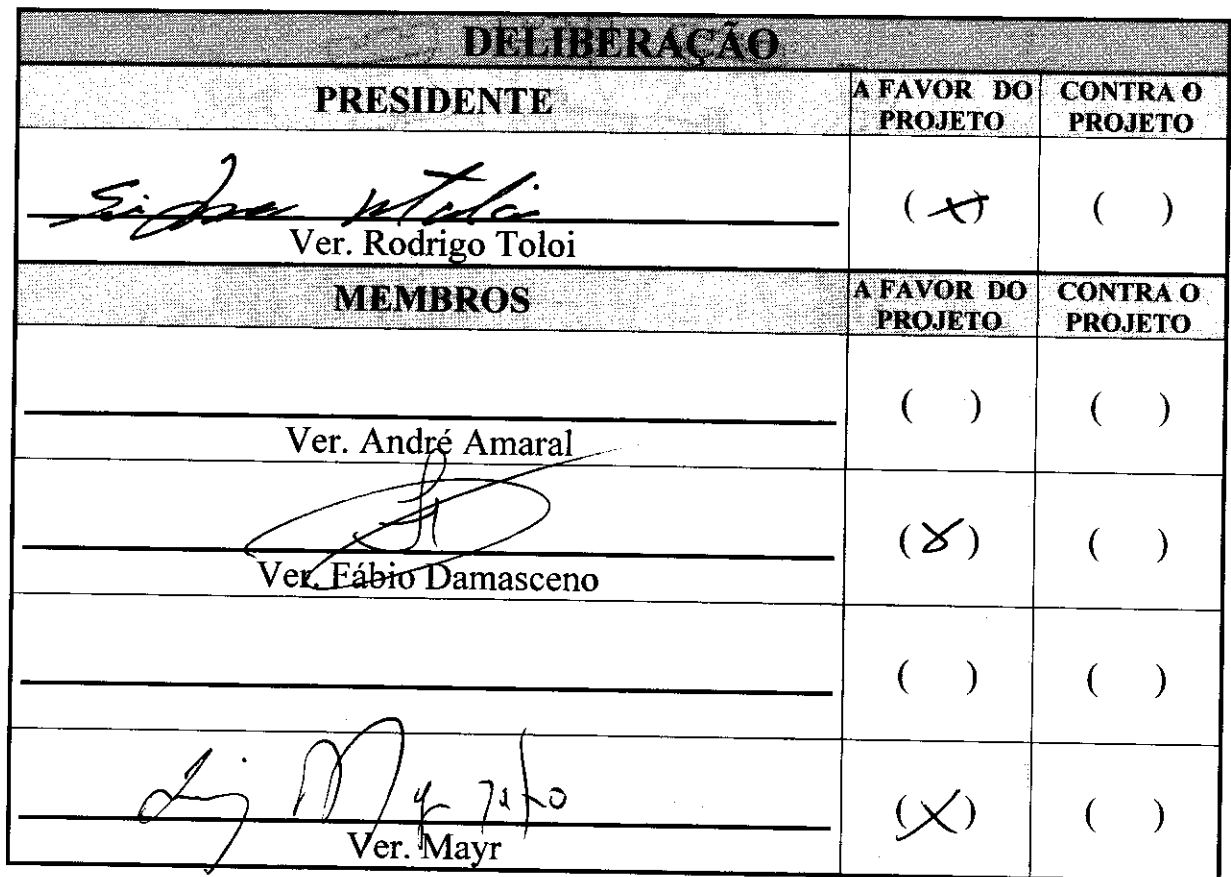 DELIBERAÇÃO
PRESIDENTE
A FAVOR DO PROJETO
CONTRA O PROJETO
( X )
( )
Ver. Rodrigo Toloi
MEMBROS
A FAVOR DO PROJETO
CONTRA O PROJETO
( )
( )
Ver. André Amaral
( X )
( )
Ver. Fábio Damasceno
( )
( )
( X )
( )
Ver. Mayr